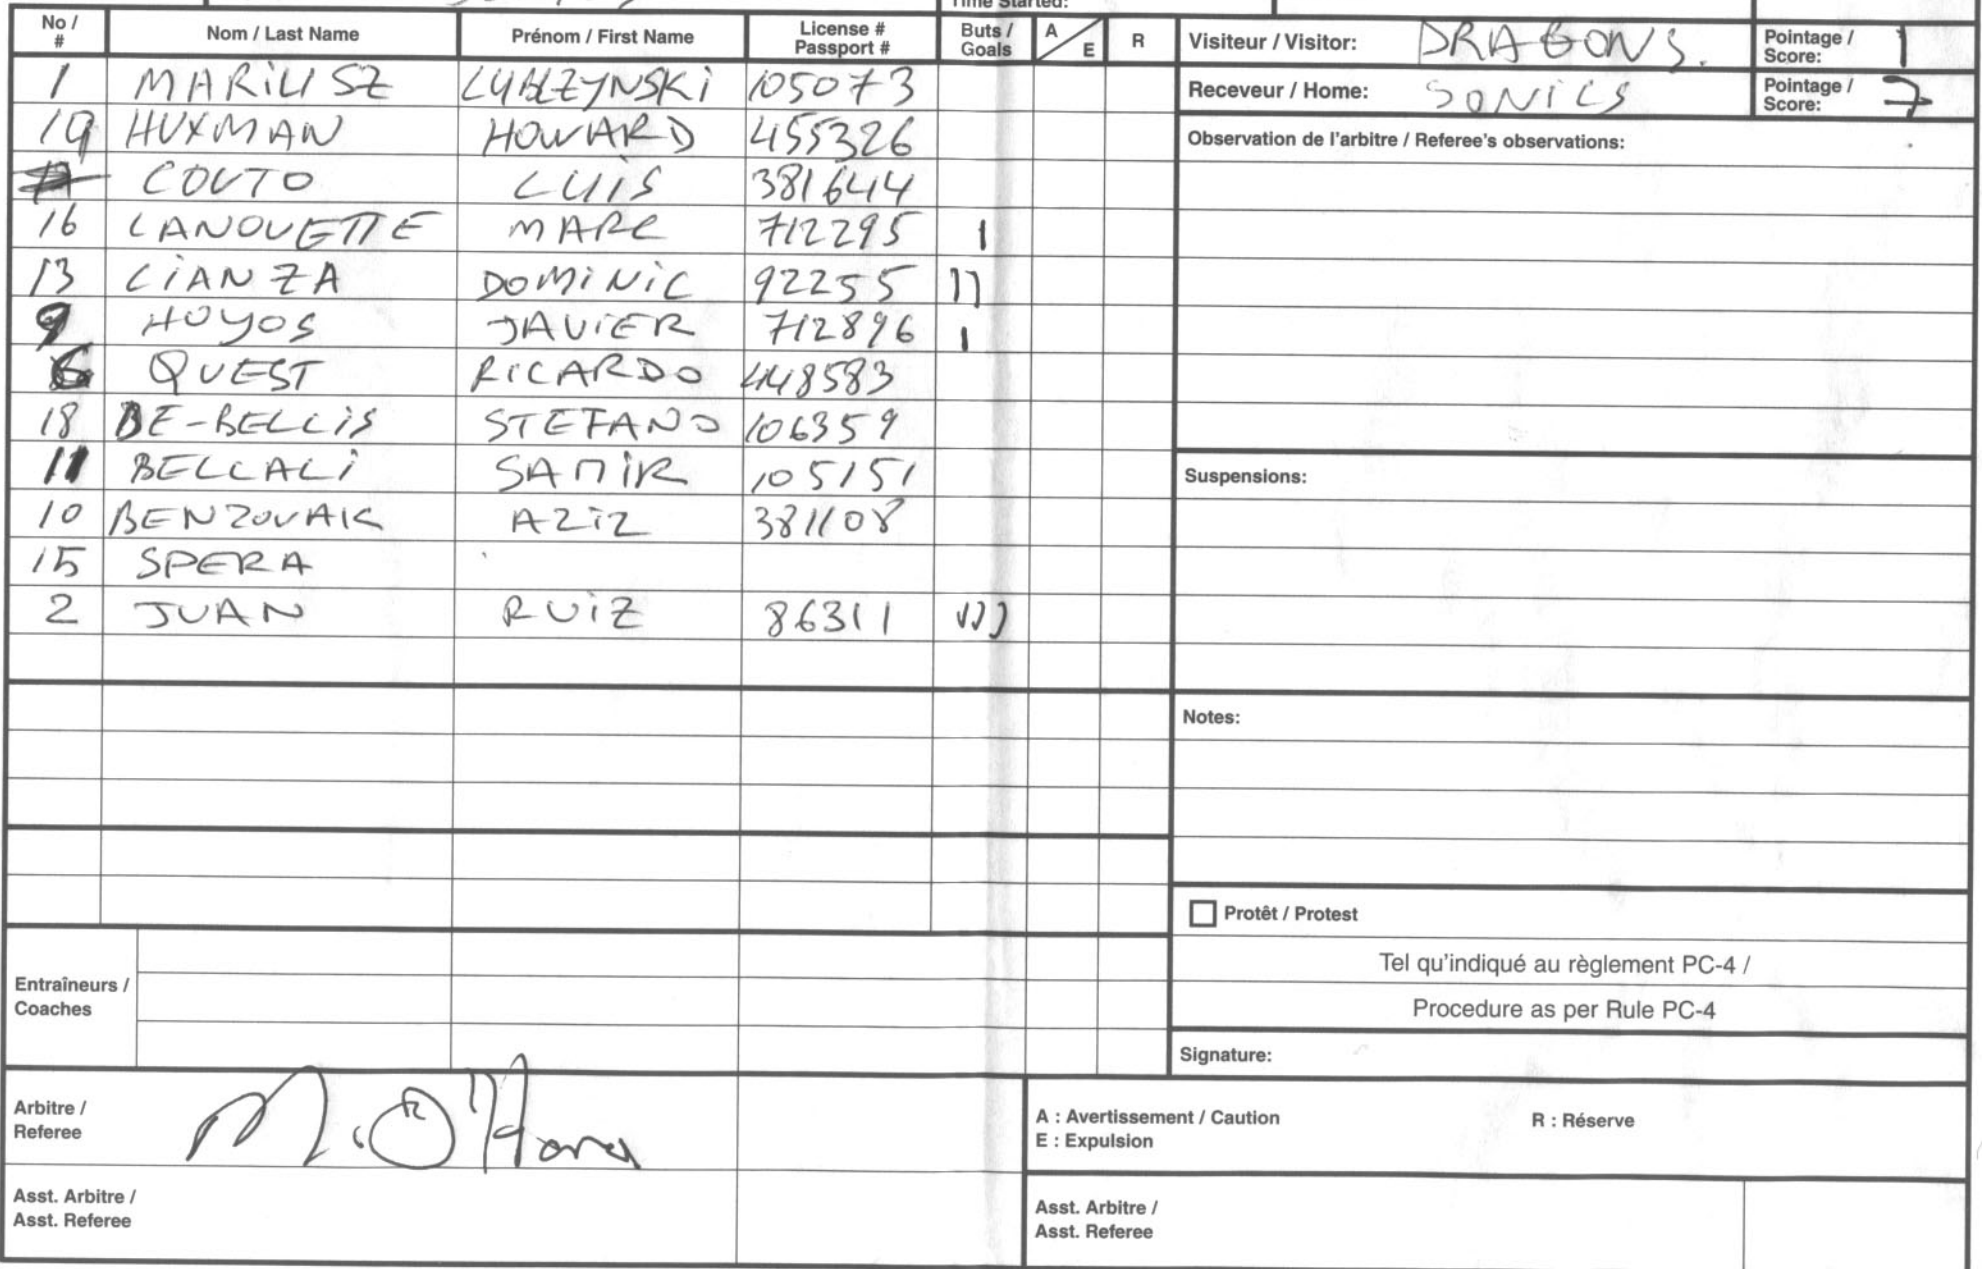 Time Started:
No / # Nom / Last Name Prénom / First Name License # Passport # Buts / Goals A E R
1 MARIUSZ LUBCZYNSKI 105073
19 HUXMAN HOWARD 455326
COUTO LUIS 381644
16 LANOUETTE MARC 712295 1
13 CIANZA DOMINIC 92255 11
9 HOYOS JAVIER 712896 1
6 QUEST RICARDO 448583
18 BE-BELLIS STEFANO 106359
11 BELLALI SAMIR 105151
10 BENZOUAK AZIZ 381108
15 SPERA
2 JUAN RUIZ 86311 111
Entraîneurs / Coaches
Arbitre / Referee M. O'Hara
Asst. Arbitre / Asst. Referee
Visiteur / Visitor: DRAGONS. Pointage / Score: 1
Receveur / Home: SONICS Pointage / Score: 7
Observation de l'arbitre / Referee's observations:
Suspensions:
Notes:
Protêt / Protest
Tel qu'indiqué au règlement PC-4 /
Procedure as per Rule PC-4
Signature:
A : Avertissement / Caution R : Réserve
E : Expulsion
Asst. Arbitre / Asst. Referee